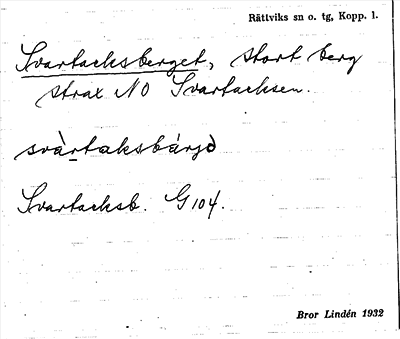 Rättviks sn o. tg, Kopp. l.
Svartacksberget, stort berg
strax NO Svartacksen.
svàrtaksbárjə
Svartacksb. G 104.
Bror Lindén 1932